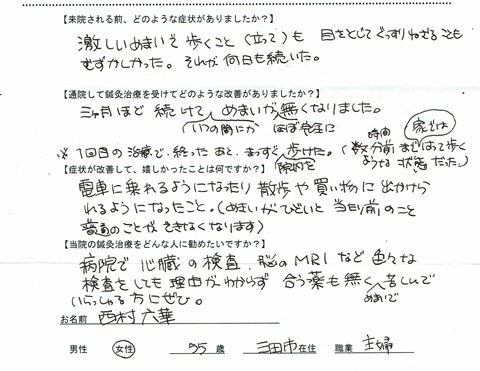 【来院される前、どのような症状がありましたか?】
激しいめまいで歩くこと(立って)も 目をとじてぐっすりねむることも
むずかしかった。それが何日も続いた。
【通院して鍼灸治療を受けてどのような改善がありましたか?】
三ヶ月ほど続けて めまいが無くなりました。
いつの間にか ほぼ完全に
家では
※1回目の治療で、終ったあと、まっすぐ歩けた。(数分前まではって歩く
時間
院内を
ような状態だった。)
【症状が改善して、嬉しかったことは何ですか?】
電車に乗れるようになたり散歩や買い物に出かけら
れるようになったこと。(めまいがひどいと当たり前のこと
普通のことができなくなります)
【当院の鍼灸治療をどんな人に勧めたいですか?】
病院で心臓の検査、脳のMRIなど色々な
検査をしても理由がわからず 合う薬も無く 苦しんで
めまいで
いらっしゃる方にぜひ。
お名前 西村六華
男性 女性 55歳 三田市在住 職業 主婦